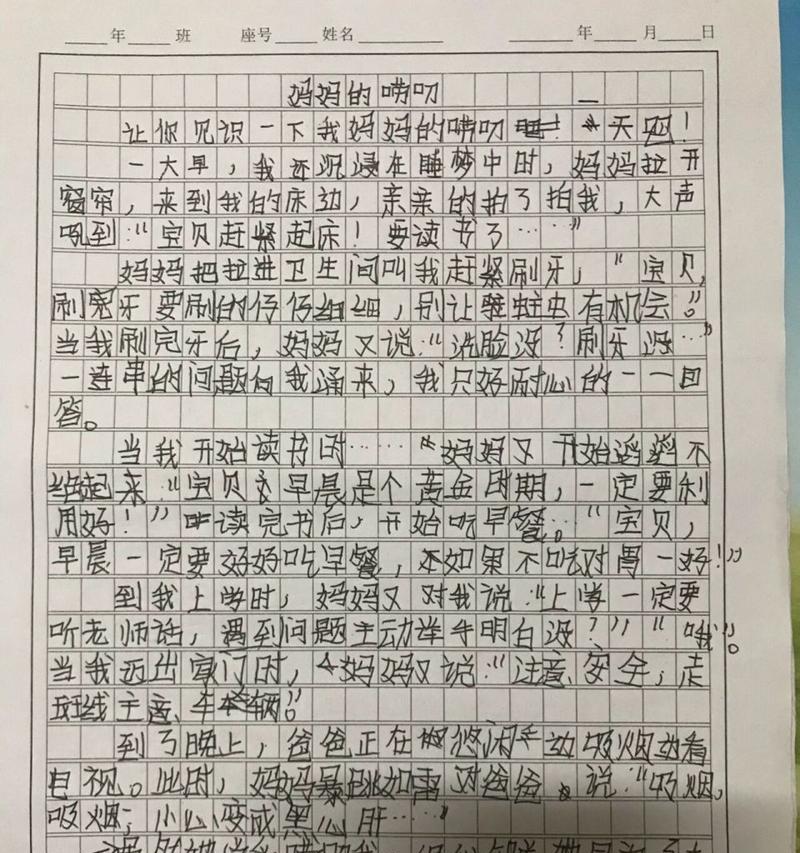 年 班 座号 姓名 年 月 日
妈妈的唠叨
让你见识一下我妈妈的唠叨 天吧!
一大早,我还沉浸在睡梦中时,妈妈拉开
窗帘,来到我的床边,亲亲的拍了拍我,大声
吼到:“宝贝赶紧起床!要读书了……”
妈妈把拉进卫生间叫我赶紧刷牙,“宝贝,
刷牙要刷的仔仔细细,别让蛀虫有机会。”
当我刷完牙后,妈妈又说:“洗脸没?刷牙没…”
一连串的问题向我涌来,我只好耐心的一一回
答。
当我开始读书时……妈妈又开始滔滔不
起来“宝贝早晨是个黄金时期,一定要利
用好!”读完书后,开始吃早餐…“宝贝,
早晨一定要好好吃早餐,如果不吃对胃一好!”
到我上学时,妈妈又对我说:“上学一定要
听老师话,遇到问题主动举手明白没?”“哦”。
当我迈出家门时,妈妈又说:“注意安全,走
斑线主意车辆”。
到了晚上,爸爸正在悠闲动吸烟动看
电视。此时,妈妈暴跳如雷对爸爸说:“吸烟,
吸烟;小心变成黑心肝……